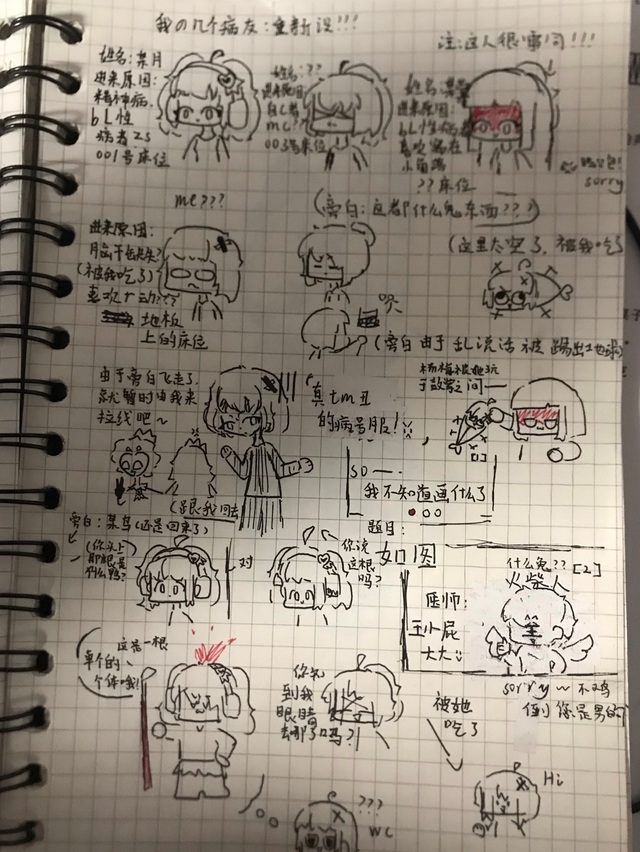 我の几个病友:重新设!!!
注:这人很雷同!!!
姓名:某月
进来原因:
精神病,
bL性
病者25
001号床位
姓名:??
进来原因
003号床位
姓名:
进来原因:
bL性
喜欢窝在
小角落
??床位
sorry
me???
(旁白:这都什么鬼东西???)
进来原因:
(被我吃了)
地板
上的床位
(这里太空了,被我吃
哭
(旁白由于乱说话被踢出地球)
由于旁白飞走了
就暂时由我来
拉线吧~
真tm丑
的病号服!
so一·
我不知道画什么了
(跟我回去
旁白:菜鸟(还是回来了)
(你头上
那根是
什么鸭?
对
你说
这根
吗?
题目:
如图
什么鬼??[2]
火柴人
医师:
王小屁
大大
这是一根
单个的、
个体哦!
你知
到我
眼睛
去哪了吗?!
sorry~不知
到您是男的
被她
吃了
Hi
???
WC